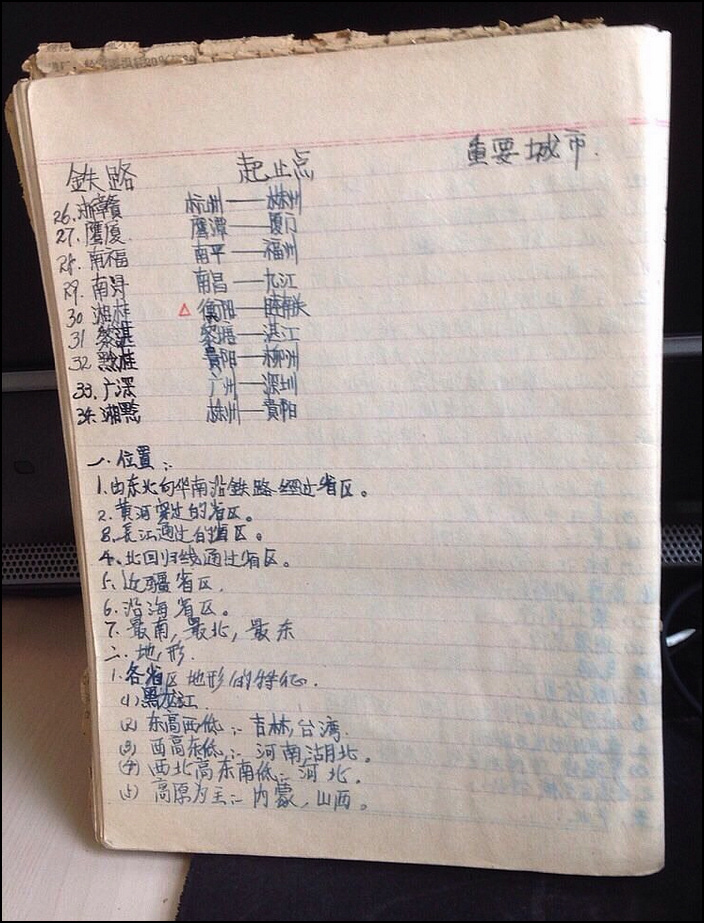 鉄路 起止点 重要城市.
26.浙赣 杭州——株州
27.鷹厦 鷹潭——厦门
28.南福 南平——福州
29.南浔 南昌——九江
30.湘桂 △衡阳——睦南关
31 黎湛 黎塘——湛江
32 黔桂 貴阳——柳州
33.广深 广州——深圳
34.湘黔 株州——貴阳
一.位置:
1.由东北向华南沿鉄路经过省区。
2.黄河穿过的省区。
3.長江通过的省区。
4.北回归线通过省区。
5.近疆省区.
6.沿海省区。
7.最南,最北,最东
二.地形.
1.各省区地形的特征.
(1)黑龙江.
(2)东高西低:吉林,台湾.
(3)西高东低:河南,湖北。
(4)西北高东南低:河北.
(5)高原为主:内蒙,山西。